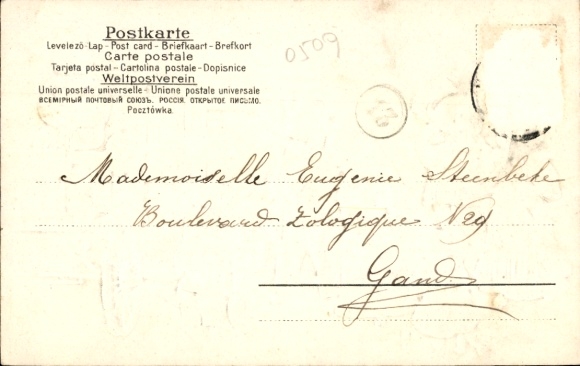 Postkarte
Levelező-Lap - Post card - Briefkaart - Brefkort
Carte postale
Tarjeta postal - Cartolina postale - Dopisnice
Weltpostverein
Union postale universelle - Unione postale universale
ВСЕМІРНЫЙ ПОЧТОВЫЙ СОЮЗЪ. РОССІЯ. ОТКРЫТОЕ ПИСЬМО.
Pocztówka.
0509
Mademoiselle Eugenie Steenbeke
Boulevard Zologique N29
Gand